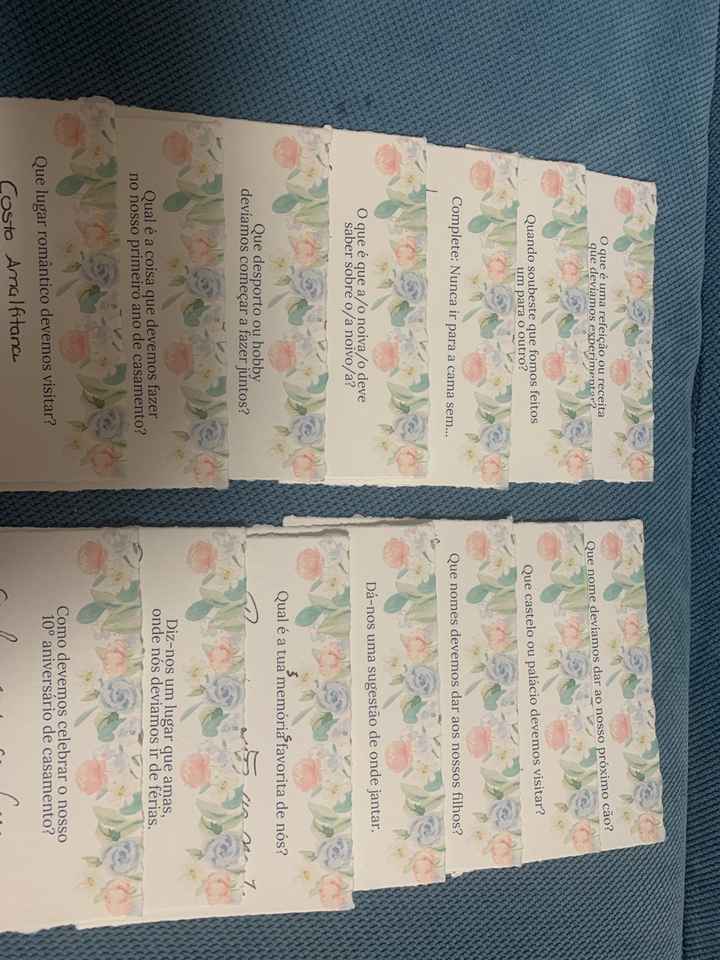 O que é uma refeição ou receita
que devíamos experimentar?
Quando soubeste que fomos feitos
um para o outro?
Complete: Nunca ir para a cama sem...
O que é que a/o noiva/o deve
saber sobre o/a noivo/a?
Que desporto ou hobby
devíamos começar a fazer juntos?
Qual é a coisa que devemos fazer
no nosso primeiro ano de casamento?
Que lugar romântico devemos visitar?
Costa Amalfitana
Que nome devíamos dar ao nosso próximo cão?
Que castelo ou palácio devemos visitar?
Que nomes devemos dar aos nossos filhos?
Dá-nos uma sugestão de onde jantar.
Qual é a tuas memórias favorita de nós?
Diz-nos um lugar que amas,
onde nós devíamos ir de férias.
Como devemos celebrar o nosso
10º aniversário de casamento?